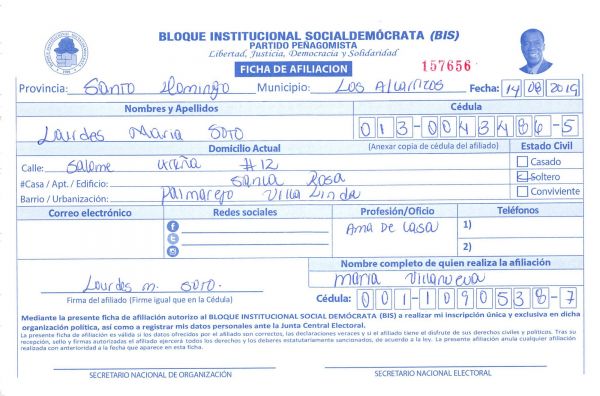 BLOQUE INSTITUCIONAL SOCIALDEMÓCRATA (BIS)
PARTIDO PEÑAGOMISTA
Libertad, Justicia, Democracia y Solidaridad
FICHA DE AFILIACION
157656
Provincia: Santo Domingo Municipio: Los Alcarrizos Fecha: 14 08 2019
Nombres y Apellidos Cédula
Lourdes Maria Soto 013-0043486-5
Domicilio Actual (Anexar copia de cédula del afiliado) Estado Civil
Calle: Salome Ureña #12 Casado
#Casa / Apt. / Edificio: Santa Rosa Soltero
Barrio / Urbanización: Palmarejo Villa Linda Conviviente
Correo electrónico Redes sociales Profesión/Oficio Teléfonos
Ama De Casa 1)
2)
Nombre completo de quien realiza la afiliación
Lourdes m. Soto. Maria Villanueva
Firma del afiliado (Firme igual que en la Cédula) Cédula: 001-1090538-7
Mediante la presente ficha de afiliación autorizo al BLOQUE INSTITUCIONAL SOCIAL DEMÓCRATA (BIS) a realizar mi inscripción única y exclusiva en dicha
organización política, así como a registrar mis datos personales ante la Junta Central Electoral.
La presente ficha de afiliación es válida si los datos ofrecidos por el afiliado son correctos, las declaraciones veraces y si el afiliado tiene el disfrute de sus derechos civiles y políticos. Tras su
recepción, sello y firmas autorizadas el afiliado ejercerá todos los derechos y los deberes estatutariamente sancionados, de acuerdo a la ley. La presente afiliación anula cualquier afiliación
realizada con anterioridad a la fecha que aparece en esta ficha.
SECRETARIO NACIONAL DE ORGANIZACIÓN SECRETARIO NACIONAL ELECTORAL